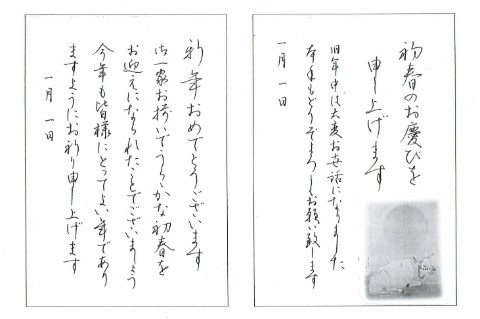 初春のお慶びを
申し上げます
旧年中は大変お世話になりました
本年もどうぞよろしくお願い致します
一月一日
新年おめでとうございます
御一家お揃いでうららかな初春を
お迎えになられたことでございましょう
今年も皆様にとってよい年であり
ますようにお祈り申し上げます
一月一日